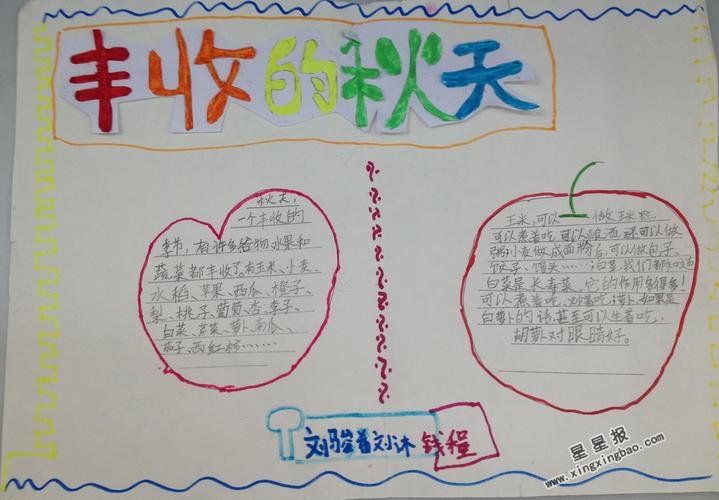 丰收的秋天
秋天,
一个丰收的
季节,有许多谷物水果和
蔬菜都丰收了有玉米、小麦、
水稻、苹果、西瓜、橙子、
梨、桃子、葡萄、杏、李子、
白菜、菜、萝卜、南瓜、
茄子、西红柿……
玉米,可以做
可以煮着吃,可以酿酒,还可以做
粥小麦做成面粉后,可以做包子、
饺子、馒头……白菜,我们都知道
白菜是长寿菜,它的作用多得多!
可以煮着吃、炒着吃萝卜,如果是
白萝卜的话甚至可以生着吃,
胡萝卜对眼睛好。
刘骏 刘沐 钱程
星星报
www.xingxingbao.com